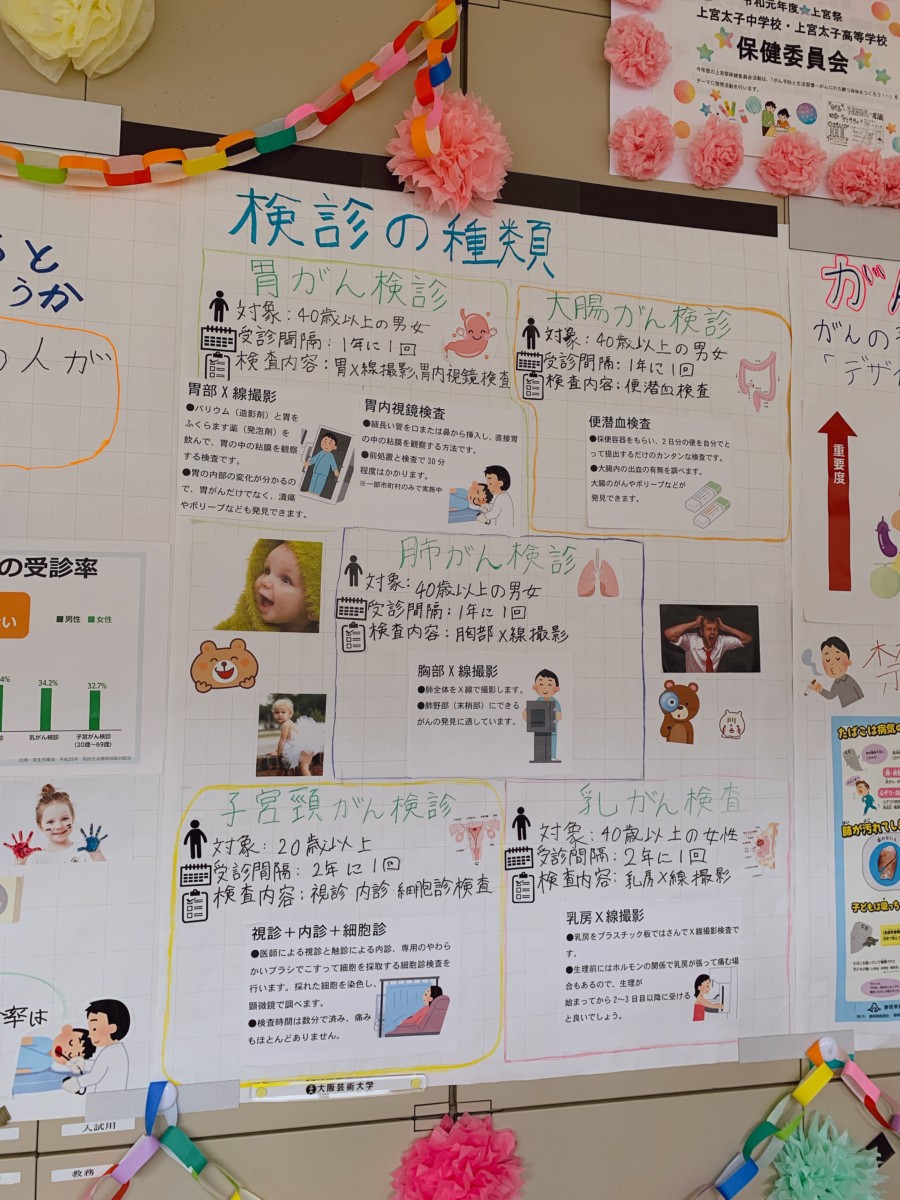 令和元年度 上宮祭
上宮太子中学校・上宮太子高等学校
保健委員会
検診の種類
胃がん検診
対象：40歳以上の男女
受診間隔：1年に1回
検査内容：胃X線撮影、胃内視鏡検査
胃部X線撮影
●バリウム（造影剤）と胃を
ふくらます薬（発泡剤）を
飲んで、胃の中の粘膜を観察
する検査です。
●胃の内部の変化が分かるの
で、胃がんだけでなく、潰瘍
やポリープなども発見できます。
胃内視鏡検査
●細長い管を口または鼻から挿入し、直接胃
の中の粘膜を観察する方法です。
●前処置と検査で30分
程度はかかります。
※一部市町村のみで実施中
大腸がん検診
対象：40歳以上の男女
受診間隔：1年に1回
検査内容：便潜血検査
便潜血検査
●採便容器をもらい、2日分の便を自分でと
って提出するだけのカンタンな検査です。
●大腸内の出血の有無を調べます。
大腸のがんやポリープなどが
発見できます。
肺がん検診
対象：40歳以上の男女
受診間隔：1年に1回
検査内容：胸部X線撮影
胸部X線撮影
●肺全体をX線で撮影します。
●肺野部（末梢部）にできる
がんの発見に適しています。
子宮頸がん検診
対象：20歳以上
受診間隔：2年に1回
検査内容：視診 内診 細胞診検査
視診＋内診＋細胞診
●医師による視診と触診による内診、専用のやわら
かいブラシでこすって細胞を採取する細胞診検査を
行います。採れた細胞を染色し、
顕微鏡で調べます。
●検査時間は数分で済み、痛み
もほとんどありません。
乳がん検査
対象：40歳以上の女性
受診間隔：2年に1回
検査内容：乳房X線撮影
乳房X線撮影
●乳房をプラスチック板ではさんでX線撮影検査で
す。
●生理前にはホルモンの関係で乳房が張って痛む場
合もあるので、生理が
始まってから2～3日目以降に受ける
と良いでしょう。
と
うか
の人が
の受診率
い
■男性 ■女性
34.2%
32.7%
乳がん検診
子宮がん検診
（20歳～69歳）
率は
がん
がんの
「デザイ
重要度
禁
たばこは病気の
肺が汚れてしま
子どもは吸っち
大阪芸術大学
入試用
教務